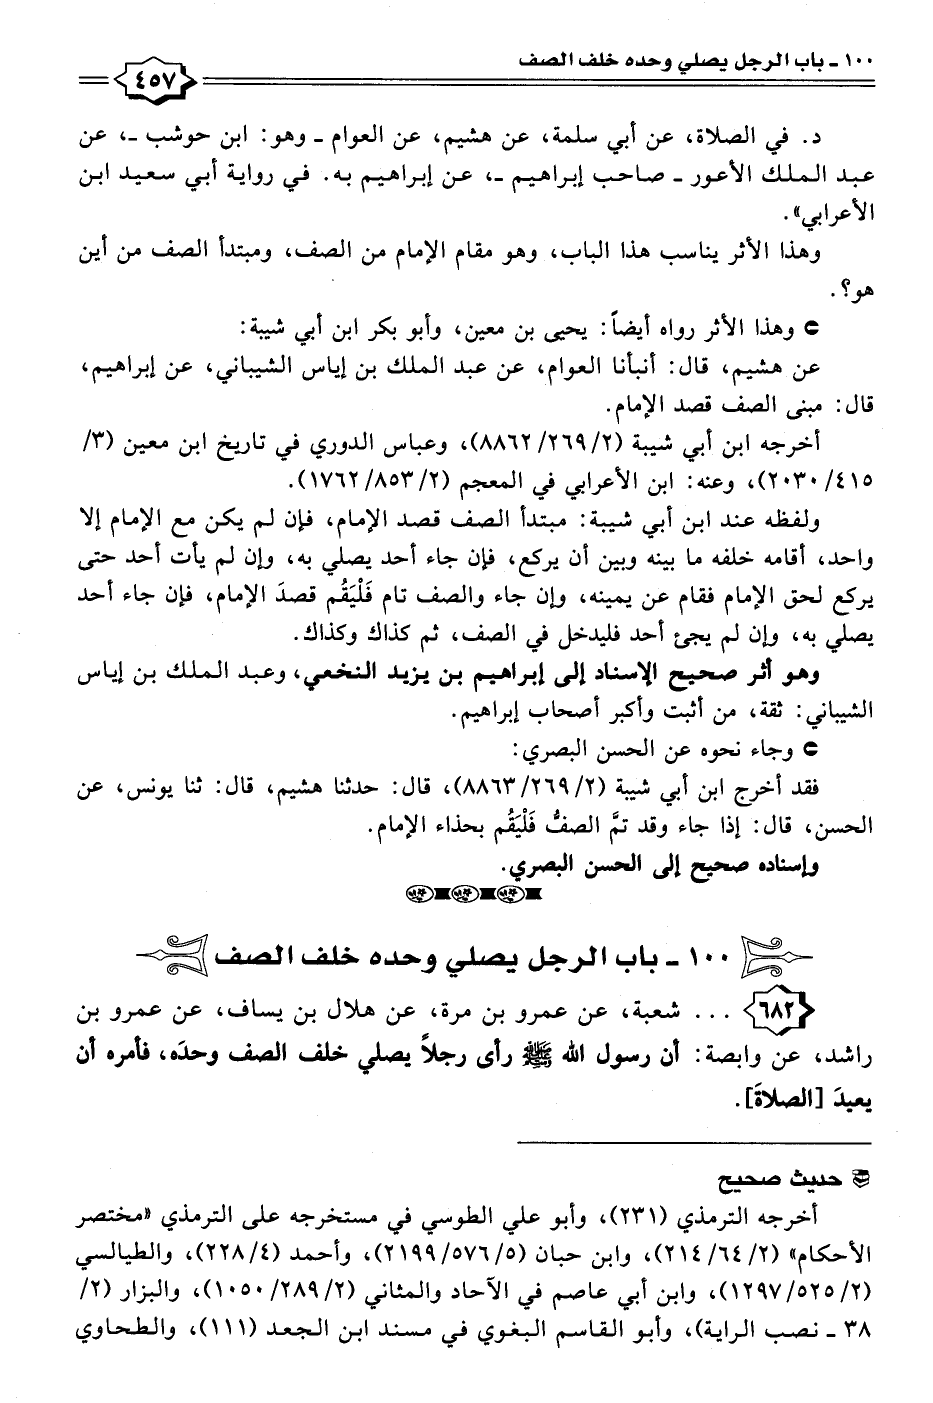 ١٠٠ ـ باب الرجل يصلي وحده خلف الصف
٤٥٧
د. في الصلاة، عن أبي سلمة، عن هشيم، عن العوام ـ وهو: ابن حوشب ـ، عن
عبد الملك الأعور ـ صاحب إبراهيم ـ، عن إبراهيم به. في رواية أبي سعيد ابن
الأعرابي».
وهذا الأثر يناسب هذا الباب، وهو مقام الإمام من الصف، ومبتدأ الصف من أين
هو؟.
وهذا الأثر رواه أيضاً: يحيى بن معين، وأبو بكر ابن أبي شيبة:
عن هشيم، قال: أنبأنا العوام، عن عبد الملك بن إياس الشيباني، عن إبراهيم،
قال: مبنى الصف قصد الإمام.
أخرجه ابن أبي شيبة (٢/ ٢٦٩/ ٨٨٦٢)، وعباس الدوري في تاريخ ابن معين (٣/
٤١٥/ ٢٠٣٠)، وعنه: ابن الأعرابي في المعجم (٢/ ٨٥٣/ ١٧٦٢).
ولفظه عند ابن أبي شيبة: مبتدأ الصف قصد الإمام، فإن لم يكن مع الإمام إلا
واحد، أقامه خلفه ما بينه وبين أن يركع، فإن جاء أحد يصلي به، وإن لم يأت أحد حتى
يركع لحق الإمام فقام عن يمينه، وإن جاء والصف تام فَلْيَقُم قصدَ الإمام، فإن جاء أحد
يصلي به، وإن لم يجئ أحد فليدخل في الصف، ثم كذاك وكذاك.
وهو أثر صحيح الإسناد إلى إبراهيم بن يزيد النخعي، وعبد الملك بن إياس
الشيباني: ثقة، من أثبت وأكبر أصحاب إبراهيم.
وجاء نحوه عن الحسن البصري:
فقد أخرج ابن أبي شيبة (٢/ ٢٦٩/ ٨٨٦٣)، قال: حدثنا هشيم، قال: ثنا يونس، عن
الحسن، قال: إذا جاء وقد تمَّ الصفُّ فَلْيَقُم بحذاء الإمام.
وإسناده صحيح إلى الحسن البصري.
١٠٠ ـ باب الرجل يصلي وحده خلف الصف
٦٨٢ ... شعبة، عن عمرو بن مرة، عن هلال بن يساف، عن عمرو بن
راشد، عن وابصة: أن رسول الله ﷺ رأى رجلاً يصلي خلف الصف وحدَه، فأمره أن
يعيدَ [الصلاةَ].
حديث صحيح
أخرجه الترمذي (٢٣١)، وأبو علي الطوسي في مستخرجه على الترمذي «مختصر
الأحكام» (٢/ ٦٤/ ٢١٤)، وابن حبان (٥/ ٥٧٦/ ٢١٩٩)، وأحمد (٤/ ٢٢٨)، والطيالسي
(٢/ ٥٢٥/ ١٢٩٧)، وابن أبي عاصم في الآحاد والمثاني (٢/ ٢٨٩/ ١٠٥٠)، والبزار (٢/
٣٨ ـ نصب الراية)، وأبو القاسم البغوي في مسند ابن الجعد (١١١)، والطحاوي